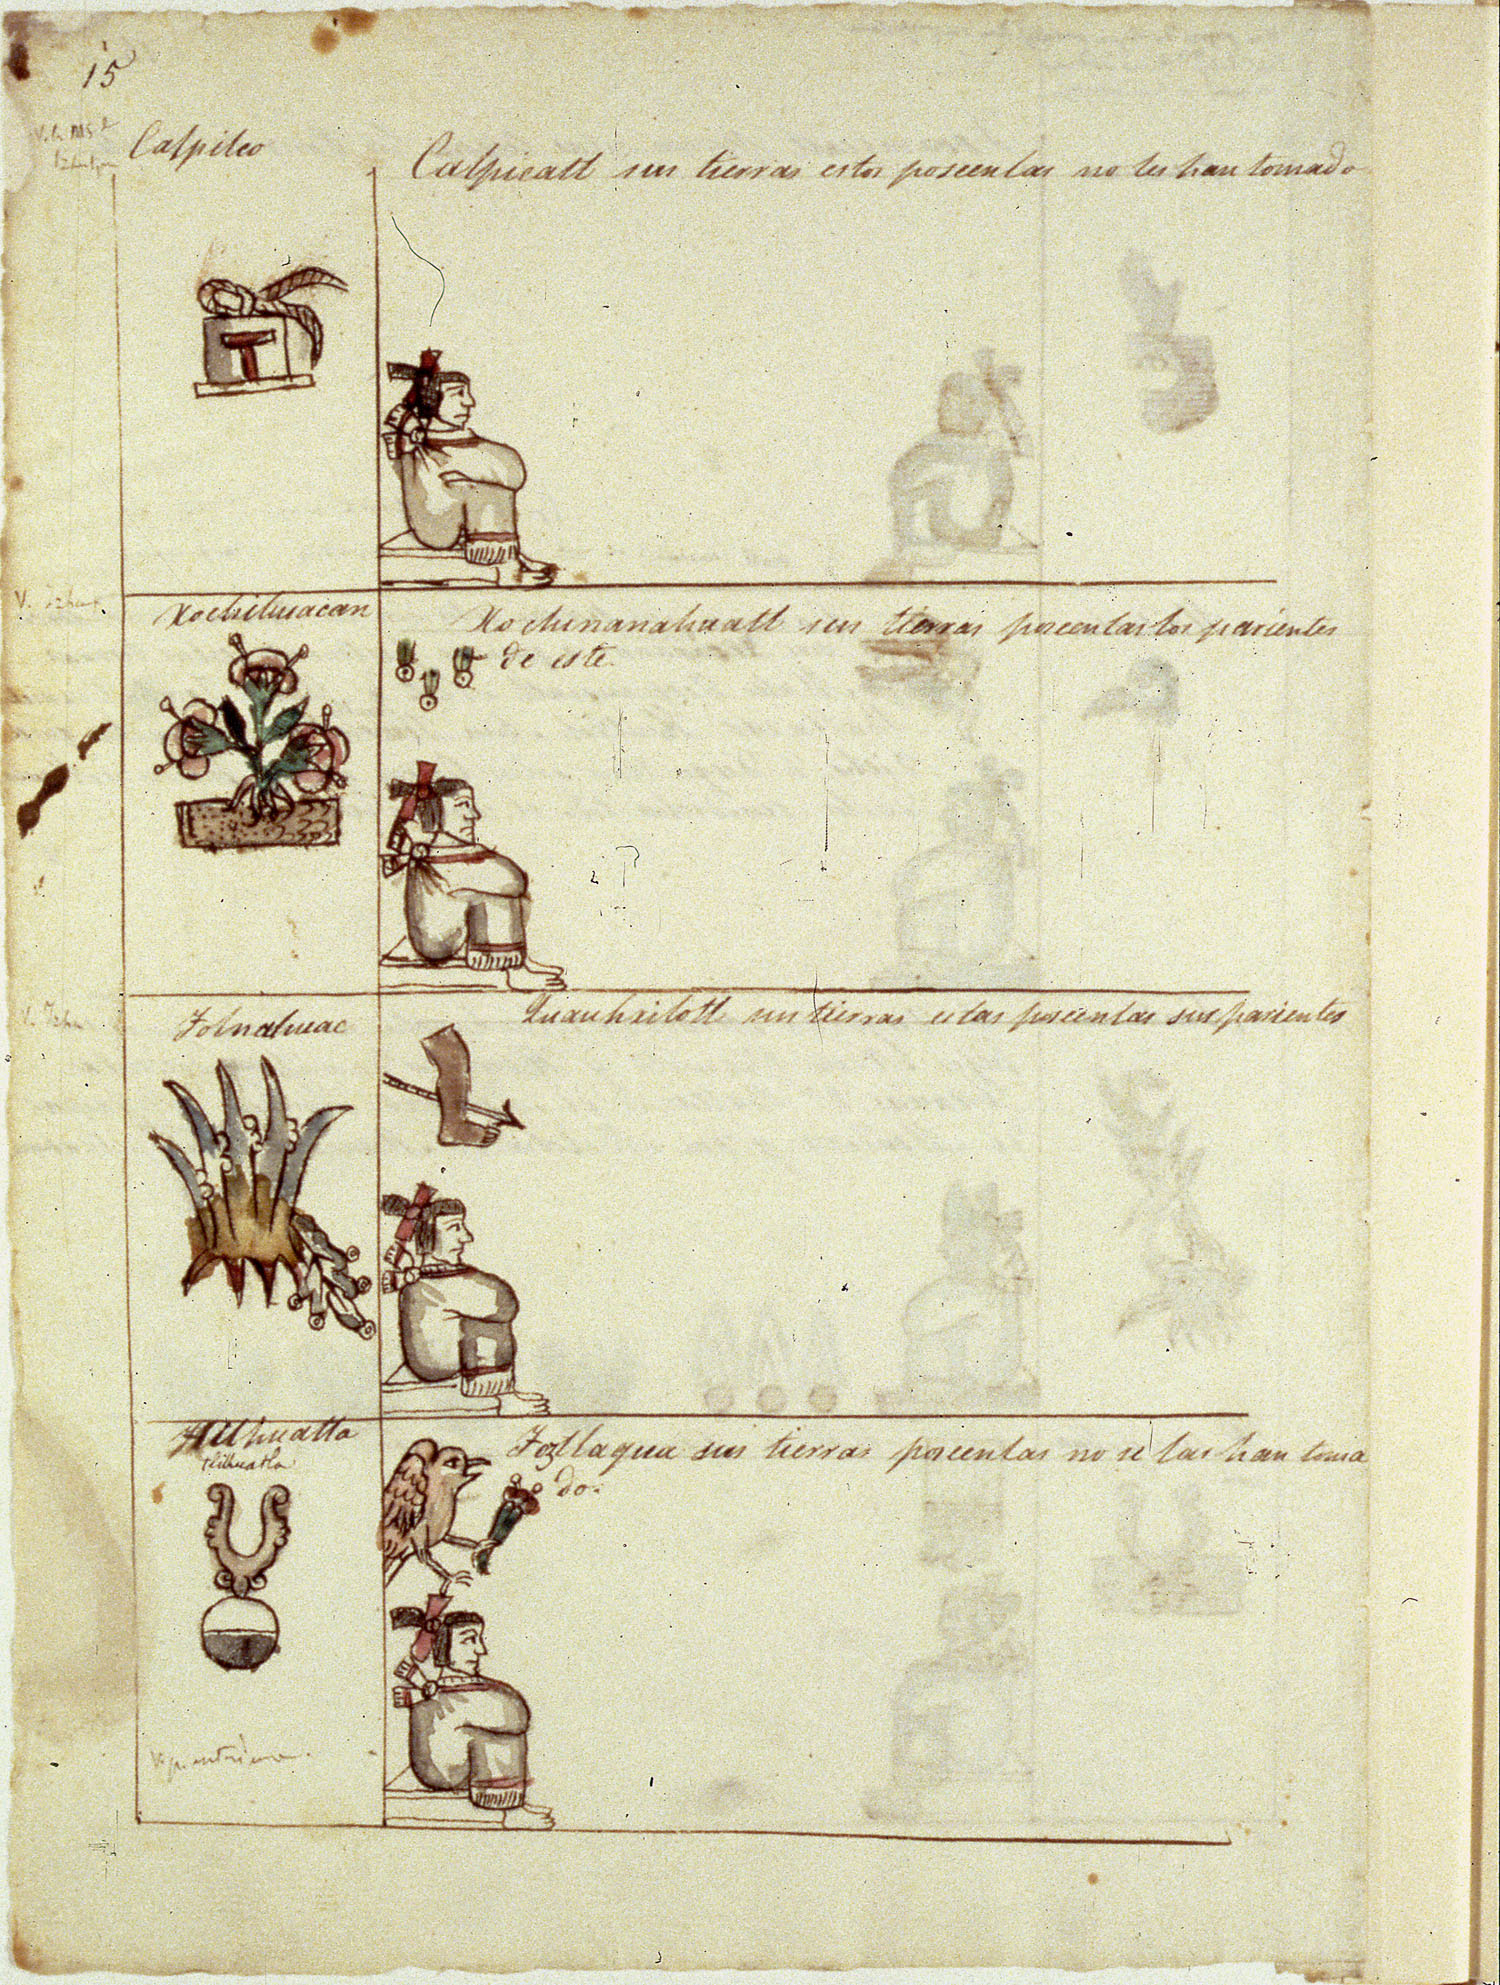 15
Calpilco
Calpicatl sus tierras estos poseenlas no les han tomado
Xochihuacan
Xochinanahuatl sus tierras poseenlas los parientes
de este.
Tolnahuac
Quauhxilotl sus tierras estas poseenlas sus parientes
Xilihuatla
Toztlaqua sus tierras poseenlas no se las han toma
do.